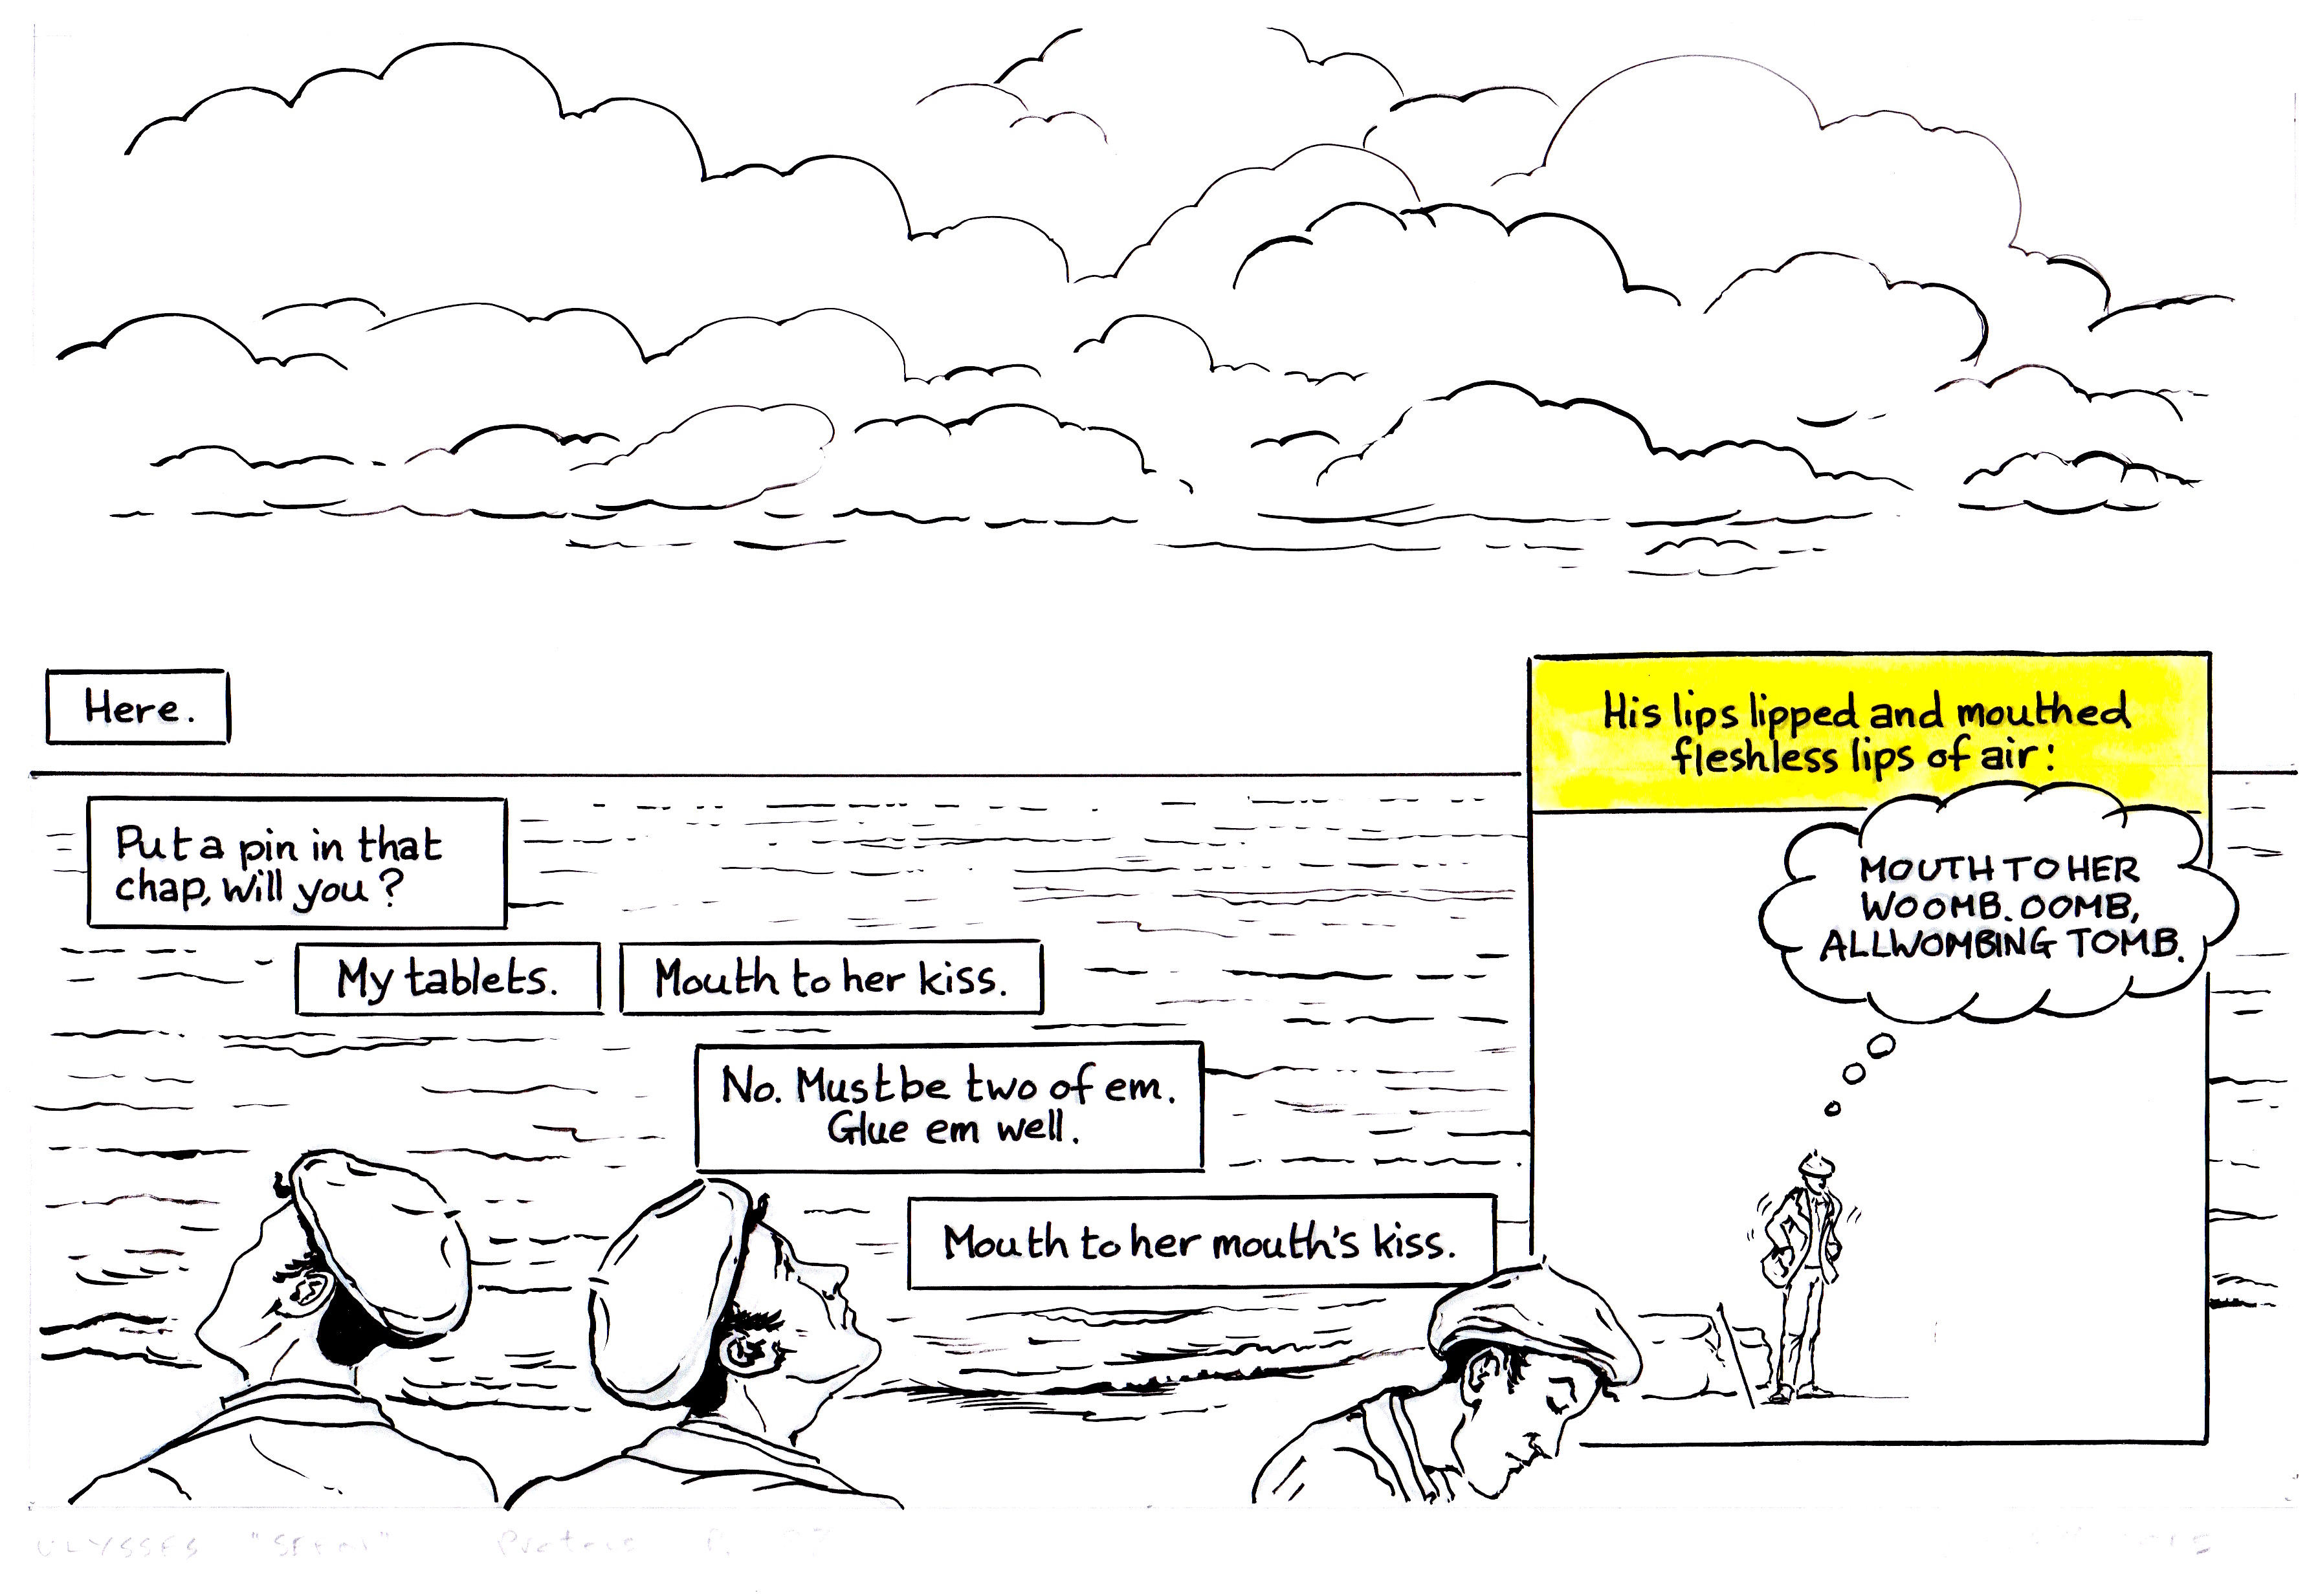 Here.
Put a pin in that
chap, will you?
My tablets.
Mouth to her kiss.
No. Must be two of em.
Glue em well.
Mouth to her mouth's kiss.
His lips lipped and mouthed
fleshless lips of air:
MOUTH TO HER
WOOMB. OOMB,
ALLWOMBING TOMB.
ULYSSES "SEEN"